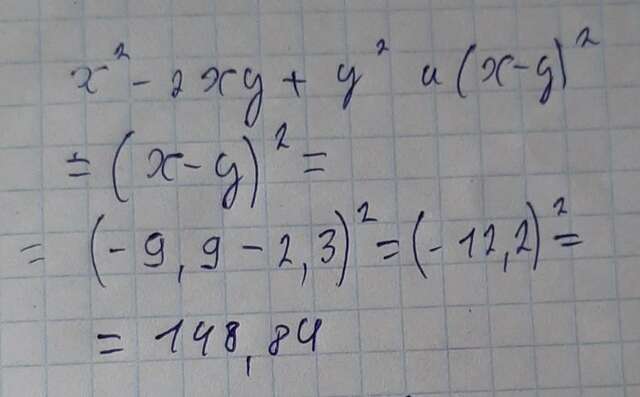 x² - 2xy + y² и (x-y)²
= (x-y)² =
= (-9,9-2,3)² = (-12,2)² =
= 148,84